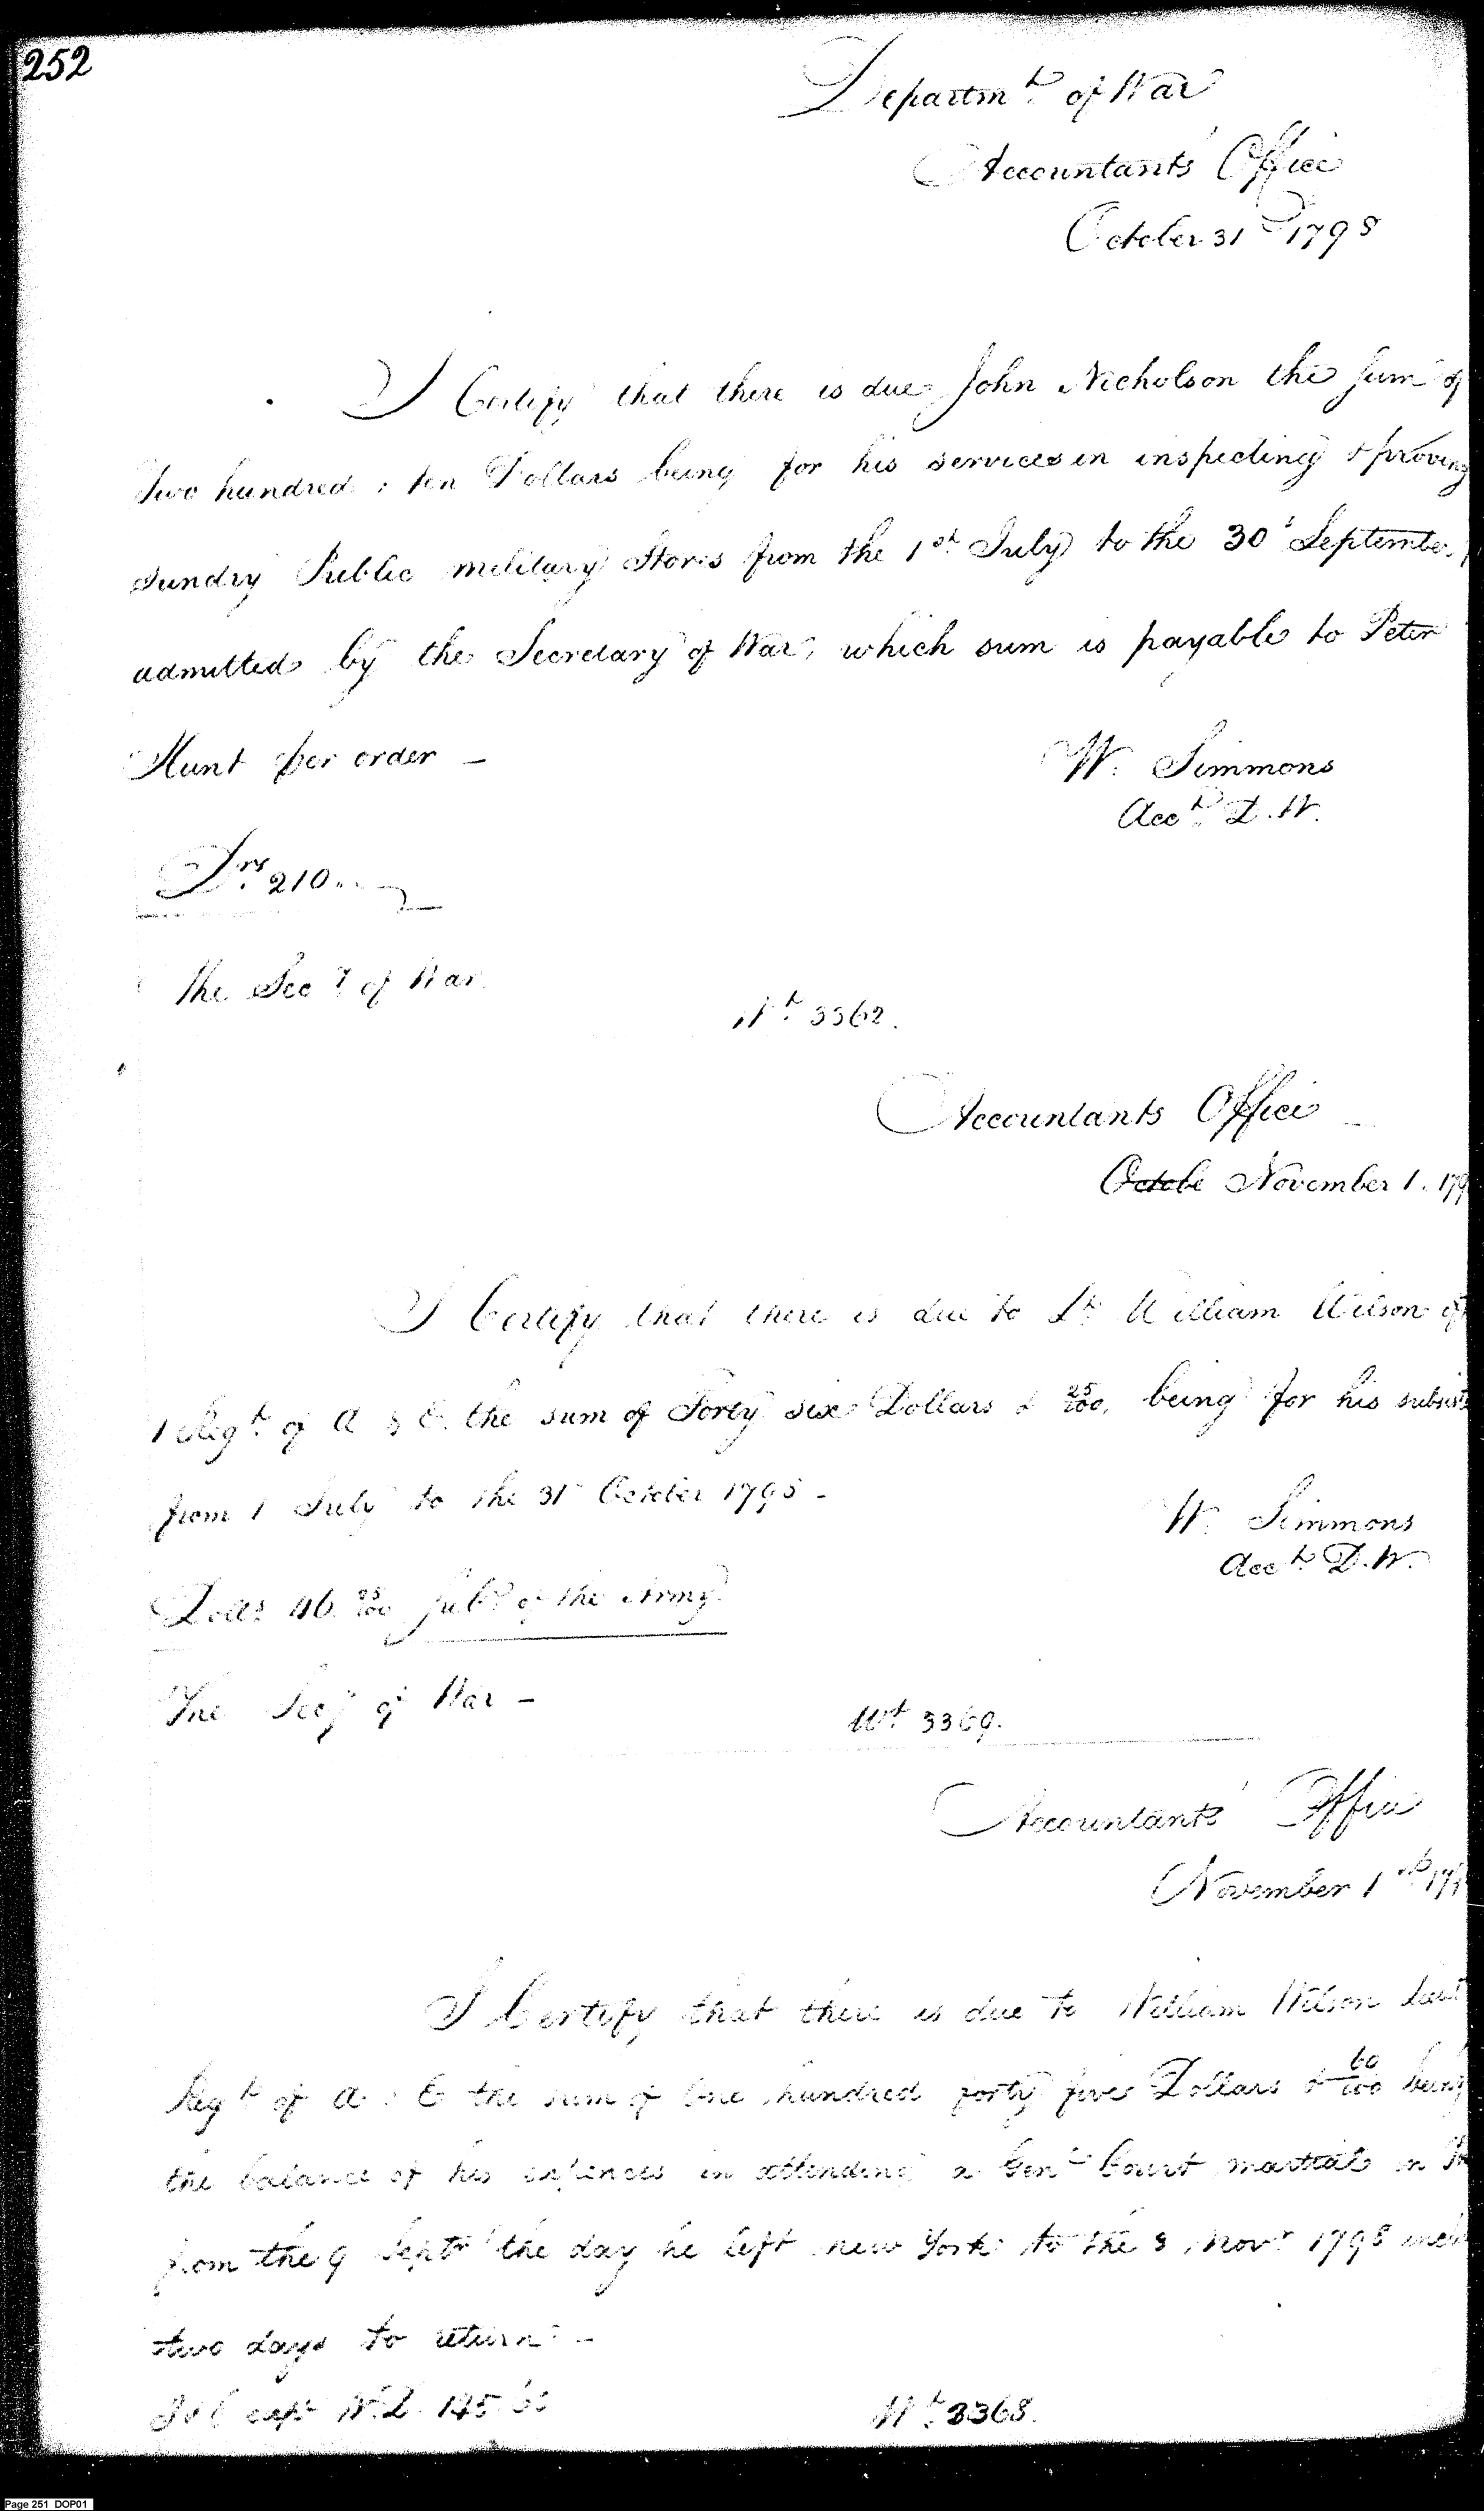 252
Departmt. of War
Accountants' Office
October 31 1798
I Certify that there is due John Nicholson the sum of
Two hundred & ten Dollars being for his services in inspecting & proving
sundry Public military Stores from the 1st July to the 30 September
admitted by the Secretary of War, which sum is payable to Peter
Hunt per order –
W. Simmons
Acct. D. W.
Drs. 210
The Secy of War
Wt. 3362.
Accountants Office
Octobe November 1. 179
I Certify that there is due to Lt William Wilson of
1 Regt. of A & E. the sum of Forty six Dollars & 25/100, being for his subsist
from 1 July to the 31 October 1798 –
W. Simmons
Acct. D. W.
Dolls 46. 25/100 Subs of the Army
The Secy of War –
Wt 3369.
Accountants' Office
November 1st 179
I Certify that there is due to William Wilson Lieut
Regt of A & E the sum of One hundred forty five Dollars & 60/100 being
the balance of his expences in attending a Genl Court martial in
from the 9 Septr the day he left new York to the 3 Novr 1798
two days to return –
W. D. 145.60
Wt. 3368.